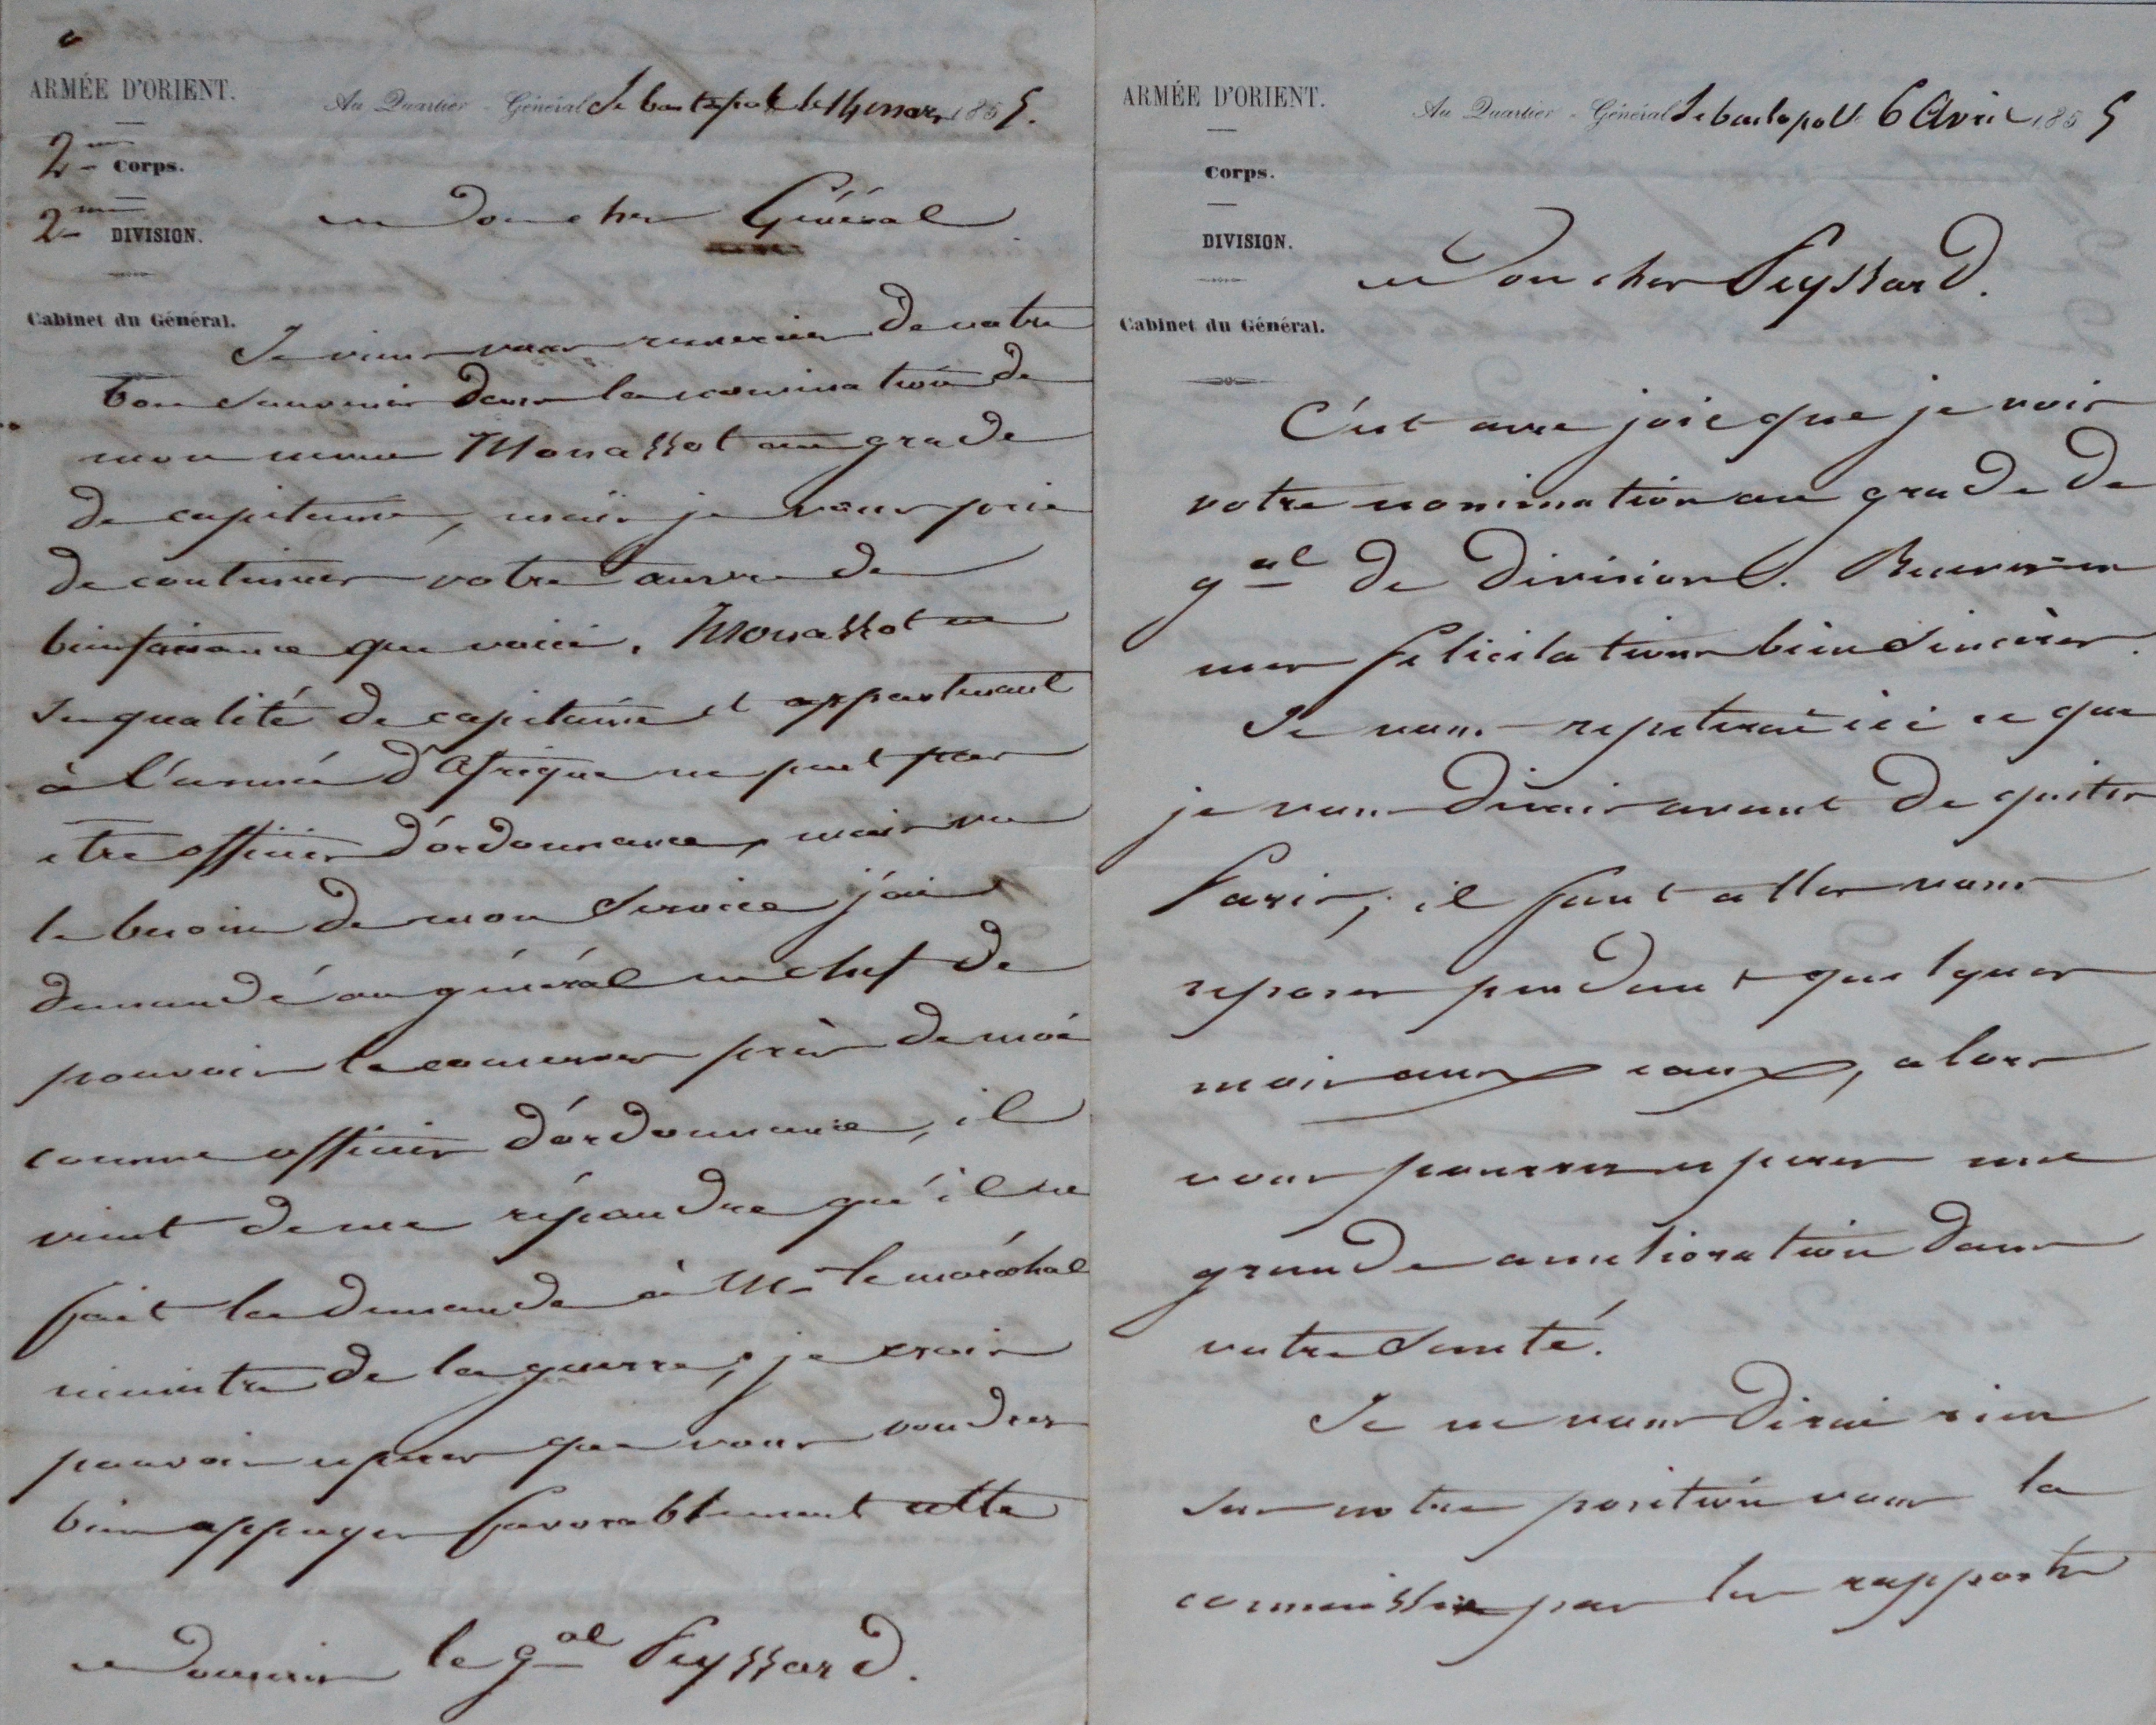 ARMÉE D'ORIENT.
Au Quartier-Général Sebastopol le 14 mars 1855.
2me Corps.
2me DIVISION.
Cabinet du Général.
Mon cher Général
Je viens vous remercier de votre
bon souvenir dans la nomination de
mon neveu Monassot au grade
de capitaine, mais je vous prie
de continuer votre œuvre de
bienfaisance que voici. Monassot en
sa qualité de capitaine et appartenant
à l'armée d'Afrique ne peut pas
etre officier d'ordonnance, mais vu
le besoin de mon service j'ai
demandé au général en chef de
pouvoir le conserver près de moi
comme officier d'ordonnance, il
vient de me répondre qu'il en
fait la demande à Mr le maréchal
ministre de la guerre, je crois
pouvoir esperer que vous voudrez
bien appuyer favorablement cette
Monsieur le gal Feyssard.
ARMÉE D'ORIENT.
Au Quartier-Général Sebastopol le 6 Avril 1855
Corps.
DIVISION.
Cabinet du Général.
Mon cher Feyssard.
C'est avec joie que je vois
votre nomination au grade de
gal de Division. Recevez en
mes felicitations bien sincères.
Je vous repeterai ici ce que
je vous disais avant de quiter
Paris, il faut aller vous
reposer pendant quelques
mois aux eaux, alors
vous pourrez esperer une
grande amelioration dans
votre santé.
Je ne vous dirai rien
sur notre position vous la
connaissez par les rapports